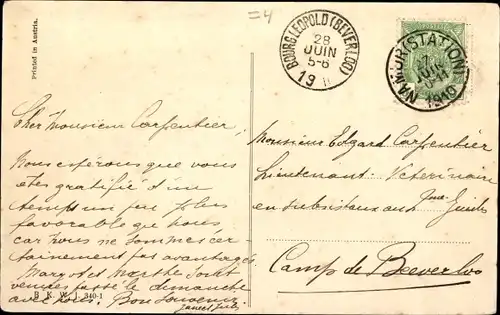 =4
Printed in Austria.
BOURG LEOPOLD (BEVERLOO)
28
JUIN
5-6
19
NAMUR (STATION)
7
JUIN
1910
Cher Monsieur Carpentier,
Nous espérons que vous
êtes gratifié d'un
temps un peu plus
favorable que nous
car nous ne sommes cer-
tainement pas avantagés.
Margot et Marthe sont
venues passé le dimanche
avec nous. Bon Souvenir
B. K. W. I. 340-1
Monsieur Edgard Carpentier
Lieutenant Vétérinaire
en subsistance aux Guides
Camp de Beverloo